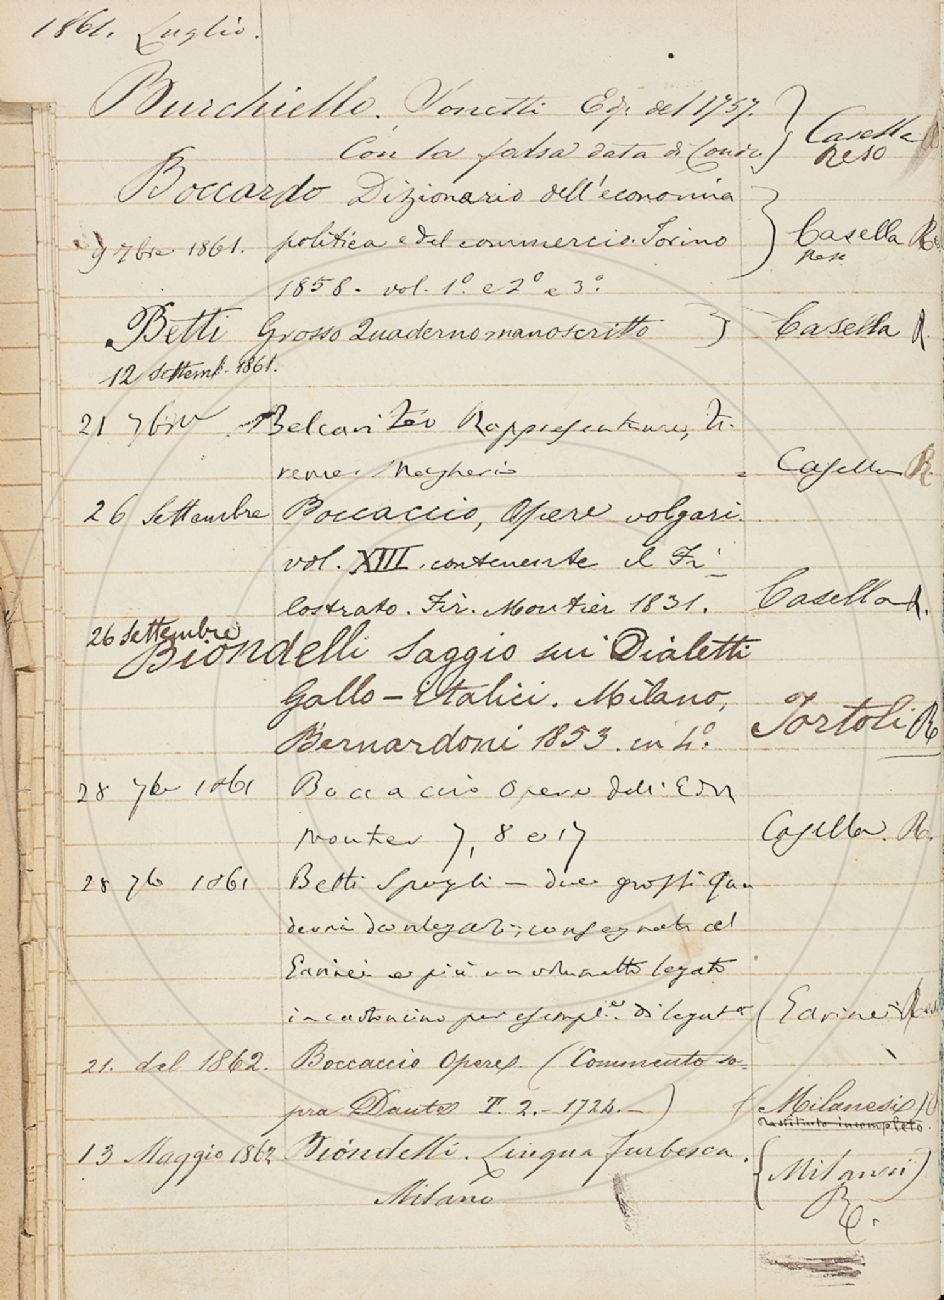 1861. Luglio.
Burchiello. Sonetti Ediz. del 1757.
Con la falsa data di Londra
Casella
reso
Boccardo Dizionario dell'economia
9 7bre 1861. politica e del commercio. Torino
Casella Re
reso
1858. vol. 1º e 2º e 3º
Betti Grosso Quaderno manoscritto Casella R.
12 Settemb. 1861.
21 7bre Belcari Feo Rappresentazioni
Casella R.
26 Settembre Boccaccio, Opere volgari
vol. XIII. contenente il Fi-
lostrato. Fir. Moutier 1831. Casella R.
26 Settembre
Biondelli Saggio sui Dialetti
Gallo-Italici. Milano,
Bernardoni 1853. in 4º. Tortoli R
28 7bre 1861 Boccaccio Opere dell'Ediz
Moutier 7, 8 e 17 Casella. R.
28 7b 1861 Betti Spogli — due grossi Qua
derni da slegarsi, consegnati al
e più un volumetto legato
in cartoncino per esempl.e di legat.a
21. del 1862. Boccaccio Opere. (Commento so-
pra Dante T. 2. - 1724. —) (Milanesi) R
Restituito incompleto.
13 Maggio 1862 Biondelli. Lingua furbesca.
Milano
(Milanesi)
Re.